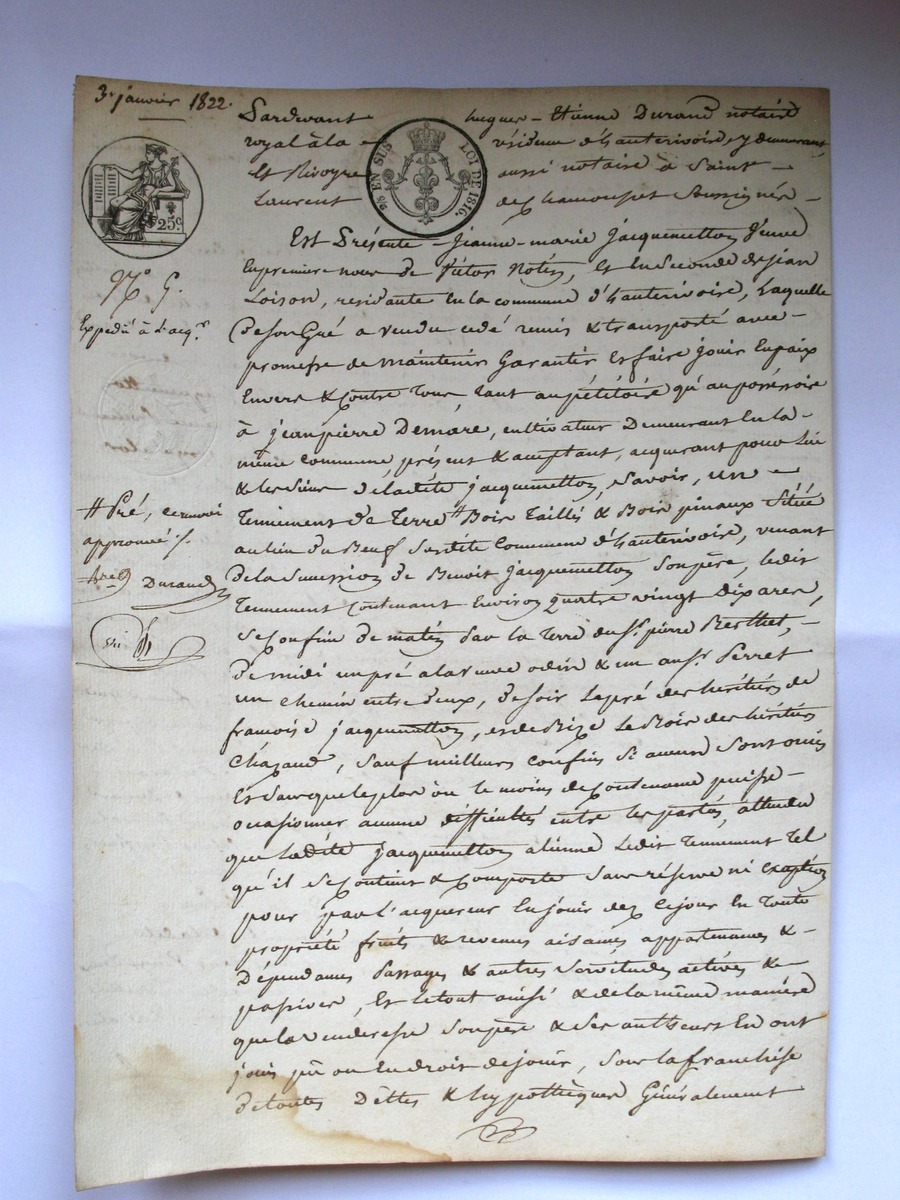 3 janvier 1822.
Pardevant hugues - Etienne Durand notaire
royal à la résidence d'hauterivoire, y demeurant
Et Rivoyre aussi notaire à Saint -
Laurent de Chamousset Soussignés -
2/8 EN SUS LOI DE 1816.
25c.
N° 9.
Expedié à l'acqr.
Est Présente - Jeanne-marie Jacquemetton Veuve
En premiere noce de Victor Notés, Et En Seconde de jean
Loison, residante En la commune d'hauterivoire, Laquelle
De Son Gré a vendu cédé remis & transporté avec
promesse de maintenir Garantir Et faire jouir En paix
Envers & Contre Tous, tant au pétitoire qu'au poséssoire
à jean pierre Demare, cultivateur Demeurant En la
même commune, présent & acceptant, acquerant pour Lui
& les Siens de ladite jacquemetton, Savoir, un -
Tennement de Terre # Bois Taillés & Bois pinaux Situé
au lieu du Beuf Susdite Commune d'hauterivoire, venant
de la Succession de Benoit Jacquemetton Son père, Ledit
Tennement Contenant Environ quatre vingt dix ares,
Se Confine de matin par la Terre du Sr. pierre Berthet, -
De midi un pré a la veuve odin & un au Sr. Perret
un chemin entre deux, de Soir Le pré des héritiers de
françoise jacquemetton, et de Bize Le Bois des héritiers
Chazaud, Sauf meilleurs confins Si aucuns Sont omis
Et Sans que le plus ou le moins de Contenance puisse -
ocasionner aucune difficultés entre les parties, attendu
que Ladite jacquemetton aliénne Ledit Tennement Tel
qu'il Se Contient & Comporte Sans réserve ni Exception
pour par l'acquereur En jouir dez Ce jour En Toute
propriété fruits & revenus aisances appartenances & -
Dépendances Passages & autres Servitudes actives & -
passives, Et le tout ainsi & de la même manière
que la venderesse Son père & Ses autheurs En ont
joui pû ou Eu droit de jouir, Sous la franchise
de toutes Dettes & hypothèques Généralement
# Pré, ce renvoi
approuvé /.
Durand